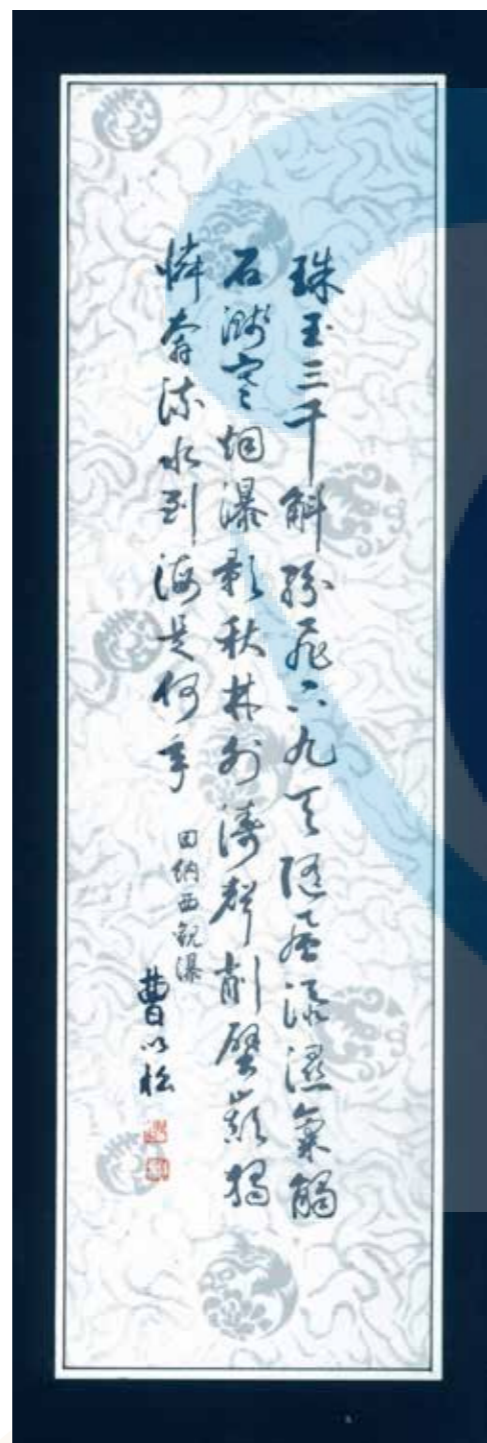 珠玉三千斛紛飛下九天隨風添濕氣觸
石濺寒烟瀑影秋林外濤聲削壁巔獨
憐奔流水到海是何年
田納西觀瀑
曹以松